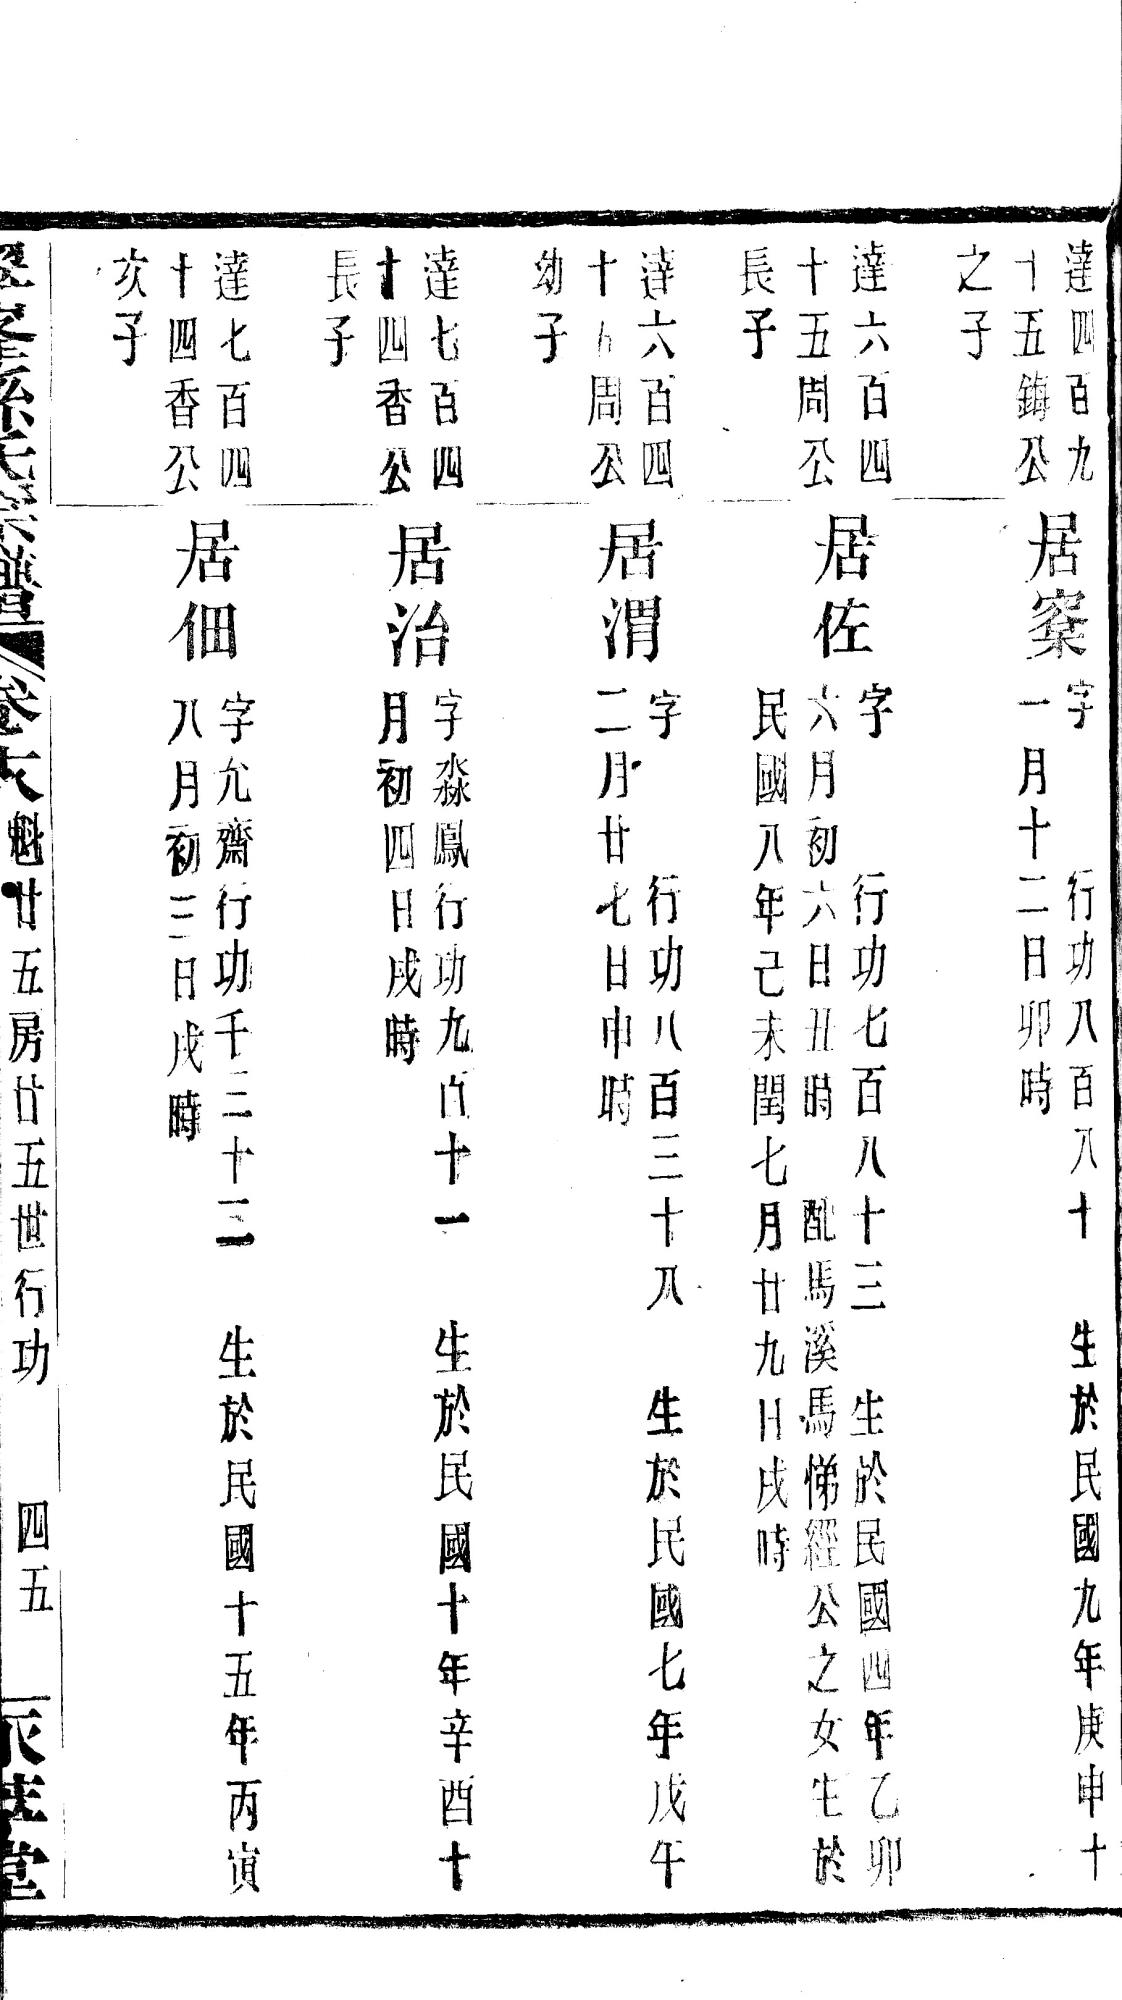 達四百九
十五鋂公
之子
居寀
字　行功八百八十　生於民國九年庚申十
一月十二日卯時
達六百四
十五周公
長子
居佐
字　行功七百八十三　生於民國四年乙卯
六月初六日丑時　配馬溪馬悌經公之女生於
民國八年己未閏七月廿九日戌時
達六百四
十五周公
幼子
居渭
字　行功八百三十八　生於民國七年戊午
二月廿七日申時
達七百四
十四香公
長子
居治
字淼鳳行功九百十一　生於民國十年辛酉十
月初四日戌時
達七百四
十四香公
次子
居佃
字允齋行功千三十三　生於民國十五年丙寅
八月初三日戌時
孫氏宗譜　卷六　魁廿五房廿五世行功　四五　堂